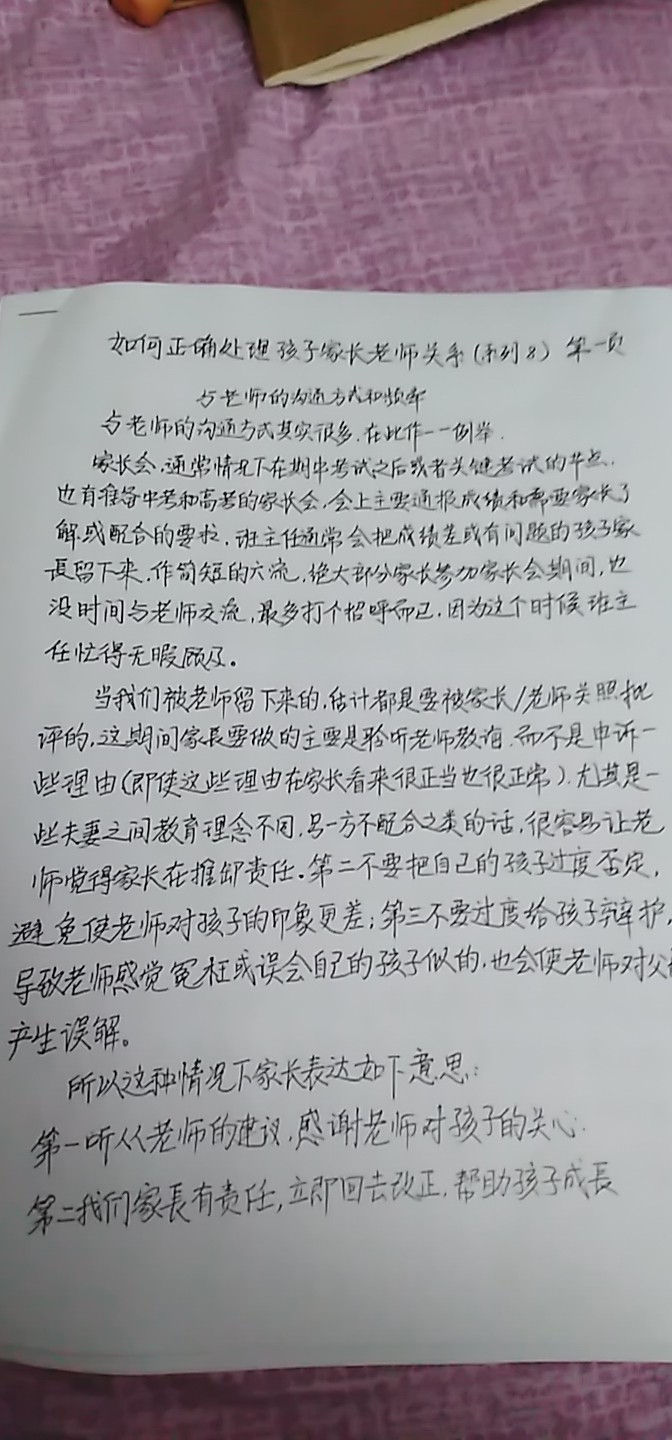 如何正确处理孩子家长老师关系(系列8)第一页
与老师的沟通方式和频率
与老师的沟通方式其实很多,在此作一一例举.
家长会,通常情况下在期中考试之后或者关键考试的节点.
也有准备中考和高考的家长会,会上主要通报成绩和需要家长了
解或配合的要求,班主任通常会把成绩差或有问题的孩子家
長留下来,作简短的交流,绝大部分家长参加家长会期间,也
没时间与老师交流,最多打个招呼而已,因为这个时候班主
任忙得无暇顾及。
当我们被老师留下来的,估计都是要被家长/老师关照批
评的,这期间家長要做的主要是聆听老师教诲,而不是申诉一
些理由(即使这些理由在家长看来很正当也很正常).尤其是一
些夫妻之间教育理念不同,另一方不配合之类的话,很容易让老
师觉得家长在推卸责任.第二不要把自己的孩子过度否定,
避免使老师对孩子的印象更差;第三不要过度给孩子辩护,
导致老师感觉冤枉或误会自己的孩子似的,也会使老师对父
产生误解。
所以这种情况下家长表达如下意思:
第一听从老师的建议,感谢老师对孩子的关心.
第二我们家長有责任,立即回去改正,帮助孩子成長